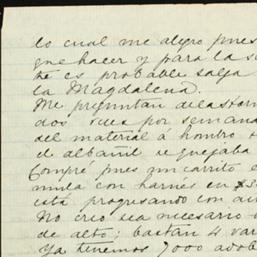 lo cual me alegro pues
que hacer y para la se
he es probable salga
la Magdalena.
Me preguntan
dos veces por semana
del material á hombro
de albañil se quejaba
Compré pues un carrito e
mula con harnes en $3
está progresando con
No creo sea necesario
de alto; bastan 4 var
Ya tenemos 7000 adob